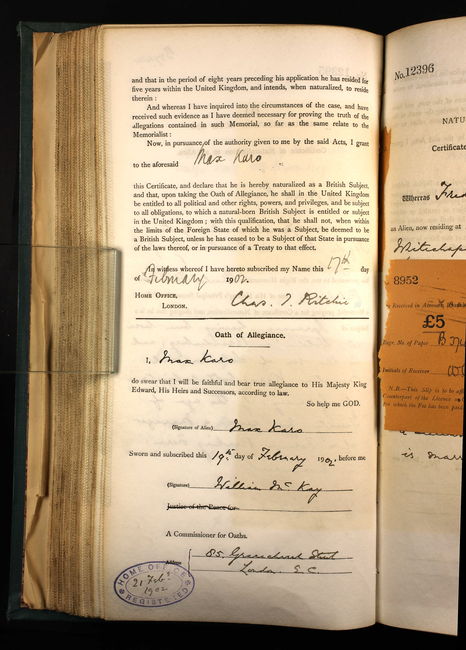 and that in the period of eight years preceding his application he has resided for
five years within the United Kingdom, and intends, when naturalized, to reside
therein :
And whereas I have inquired into the circumstances of the case, and have
received such evidence as I have deemed necessary for proving the truth of the
allegations contained in such Memorial, so far as the same relate to the
Memorialist :
Now, in pursuance of the authority given to me by the said Acts, I grant
to the aforesaid Max Karo
this Certificate, and declare that he is hereby naturalized as a British Subject,
and that, upon taking the Oath of Allegiance, he shall in the United Kingdom
be entitled to all political and other rights, powers, and privileges, and be subject
to all obligations, to which a natural-born British Subject is entitled or subject
in the United Kingdom ; with this qualification, that he shall not, when within
the limits of the Foreign State of which he was a Subject, be deemed to be
a British Subject, unless he has ceased to be a Subject of that State in pursuance
of the laws thereof, or in pursuance of a Treaty to that effect.
In witness whereof I have hereto subscribed my Name this 17th day
of February 1902.
HOME OFFICE,
LONDON.
Chas. T. Ritchie
Oath of Allegiance.
I, Max Karo
do swear that I will be faithful and bear true allegiance to His Majesty King
Edward, His Heirs and Successors, according to law.
So help me GOD.
(Signature of Alien) Max Karo
Sworn and subscribed this 19th day of February 1902 before me
(Signature) William McKay
Justice of the Peace for
A Commissioner for Oaths.
85 Gracechurch Street
London. E.C.
HOME OFFICE
21 Feb. 1902
REGISTERED
No. 12396
NATU
Certificate
Whereas Fred
an Alien, now residing at
Whitechap
8952
Received in
£5
Regr. No. of Paper B
Initials of Receiver
N.B.—This Slip is to be
Counterpart of the Licence
the Fee has been
is marr